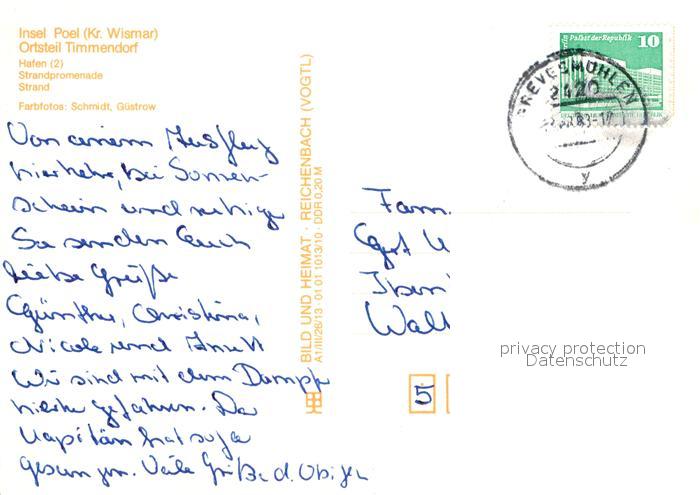 Insel Poel (Kr. Wismar)
Ortsteil Timmendorf
Hafen (2)
Strandpromenade
Strand
Farbfotos: Schmidt, Güstrow
Von einem Ausflug
hierher, bei Sonnen-
schein und ruhige
See senden Euch
liebe Grüße
Günther, Christina,
Nicole und Anett
Wir sind mit dem Dampfer
hierher gefahren. Der
Kapitän hat sogar
gesungen. Viele Grüße d. Obigen
BILD UND HEIMAT · REICHENBACH (VOGTL)
A1/III/26/13 · 01 01 1013/10 · DDR 0,20 M
Palast der Republik 10
GREVESMÜHLEN
2420
y
Fam.
Gert
Walt
5
privacy protection
Datenschutz